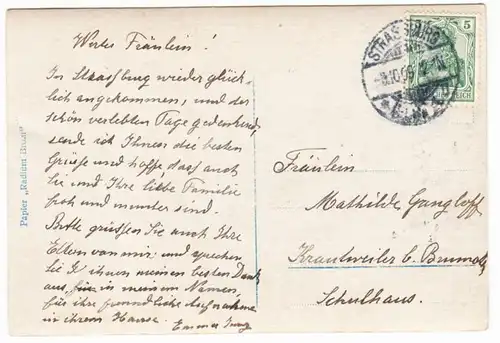 Wertes Fräulein!
In Strassburg wieder glück-
lich angekommen, und der
schön verlebten Tage gedenkend,
sende ich Ihnen die besten
Grüsse und hoffe dass auch
Sie und Ihre liebe Familie
froh und munter sind.
Bitte grüssen Sie auch Ihre
Eltern von mir und sprechen
Sie ihnen meinen besten Dank
aus, für in meinem Namen,
für ihre freundliche Aufnahme
in ihrem Hause.
Emma
Papier „Radium Brom“
STRASSBURG
5
REICH
Fräulein
Mathilde Gangloff
Krautweiler b. Brumath
Schulhaus.